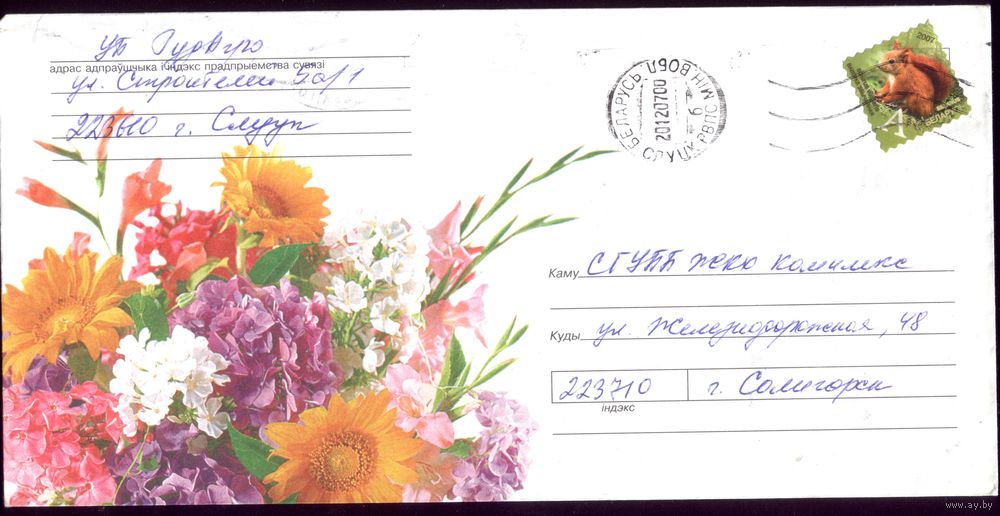 УП РудАгро
адрас адпраўшчыка і індэкс прадпрыемства сувязі
ул. Строителей 50/1
223610 г. Слуцк
БЕЛАРУСЬ МІН ВОБЛ
20120700
6
СЛУЦК РВПС
2007
А
БЕЛАРУСЬ
Каму СГУПП ЖКХ Комплекс
Куды ул. Железнодорожная, 48
223710 г. Солигорск
індэкс
www.ay.by